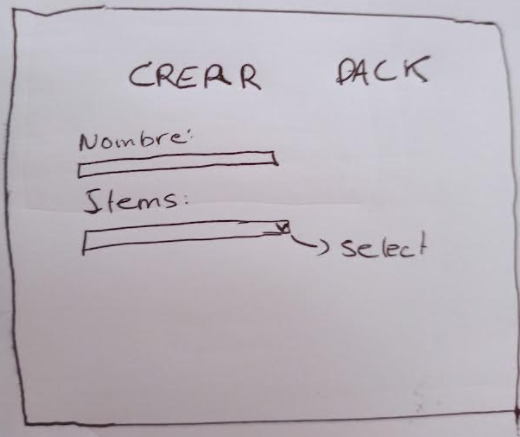 CREAR PACK
Nombre:
Items:
select